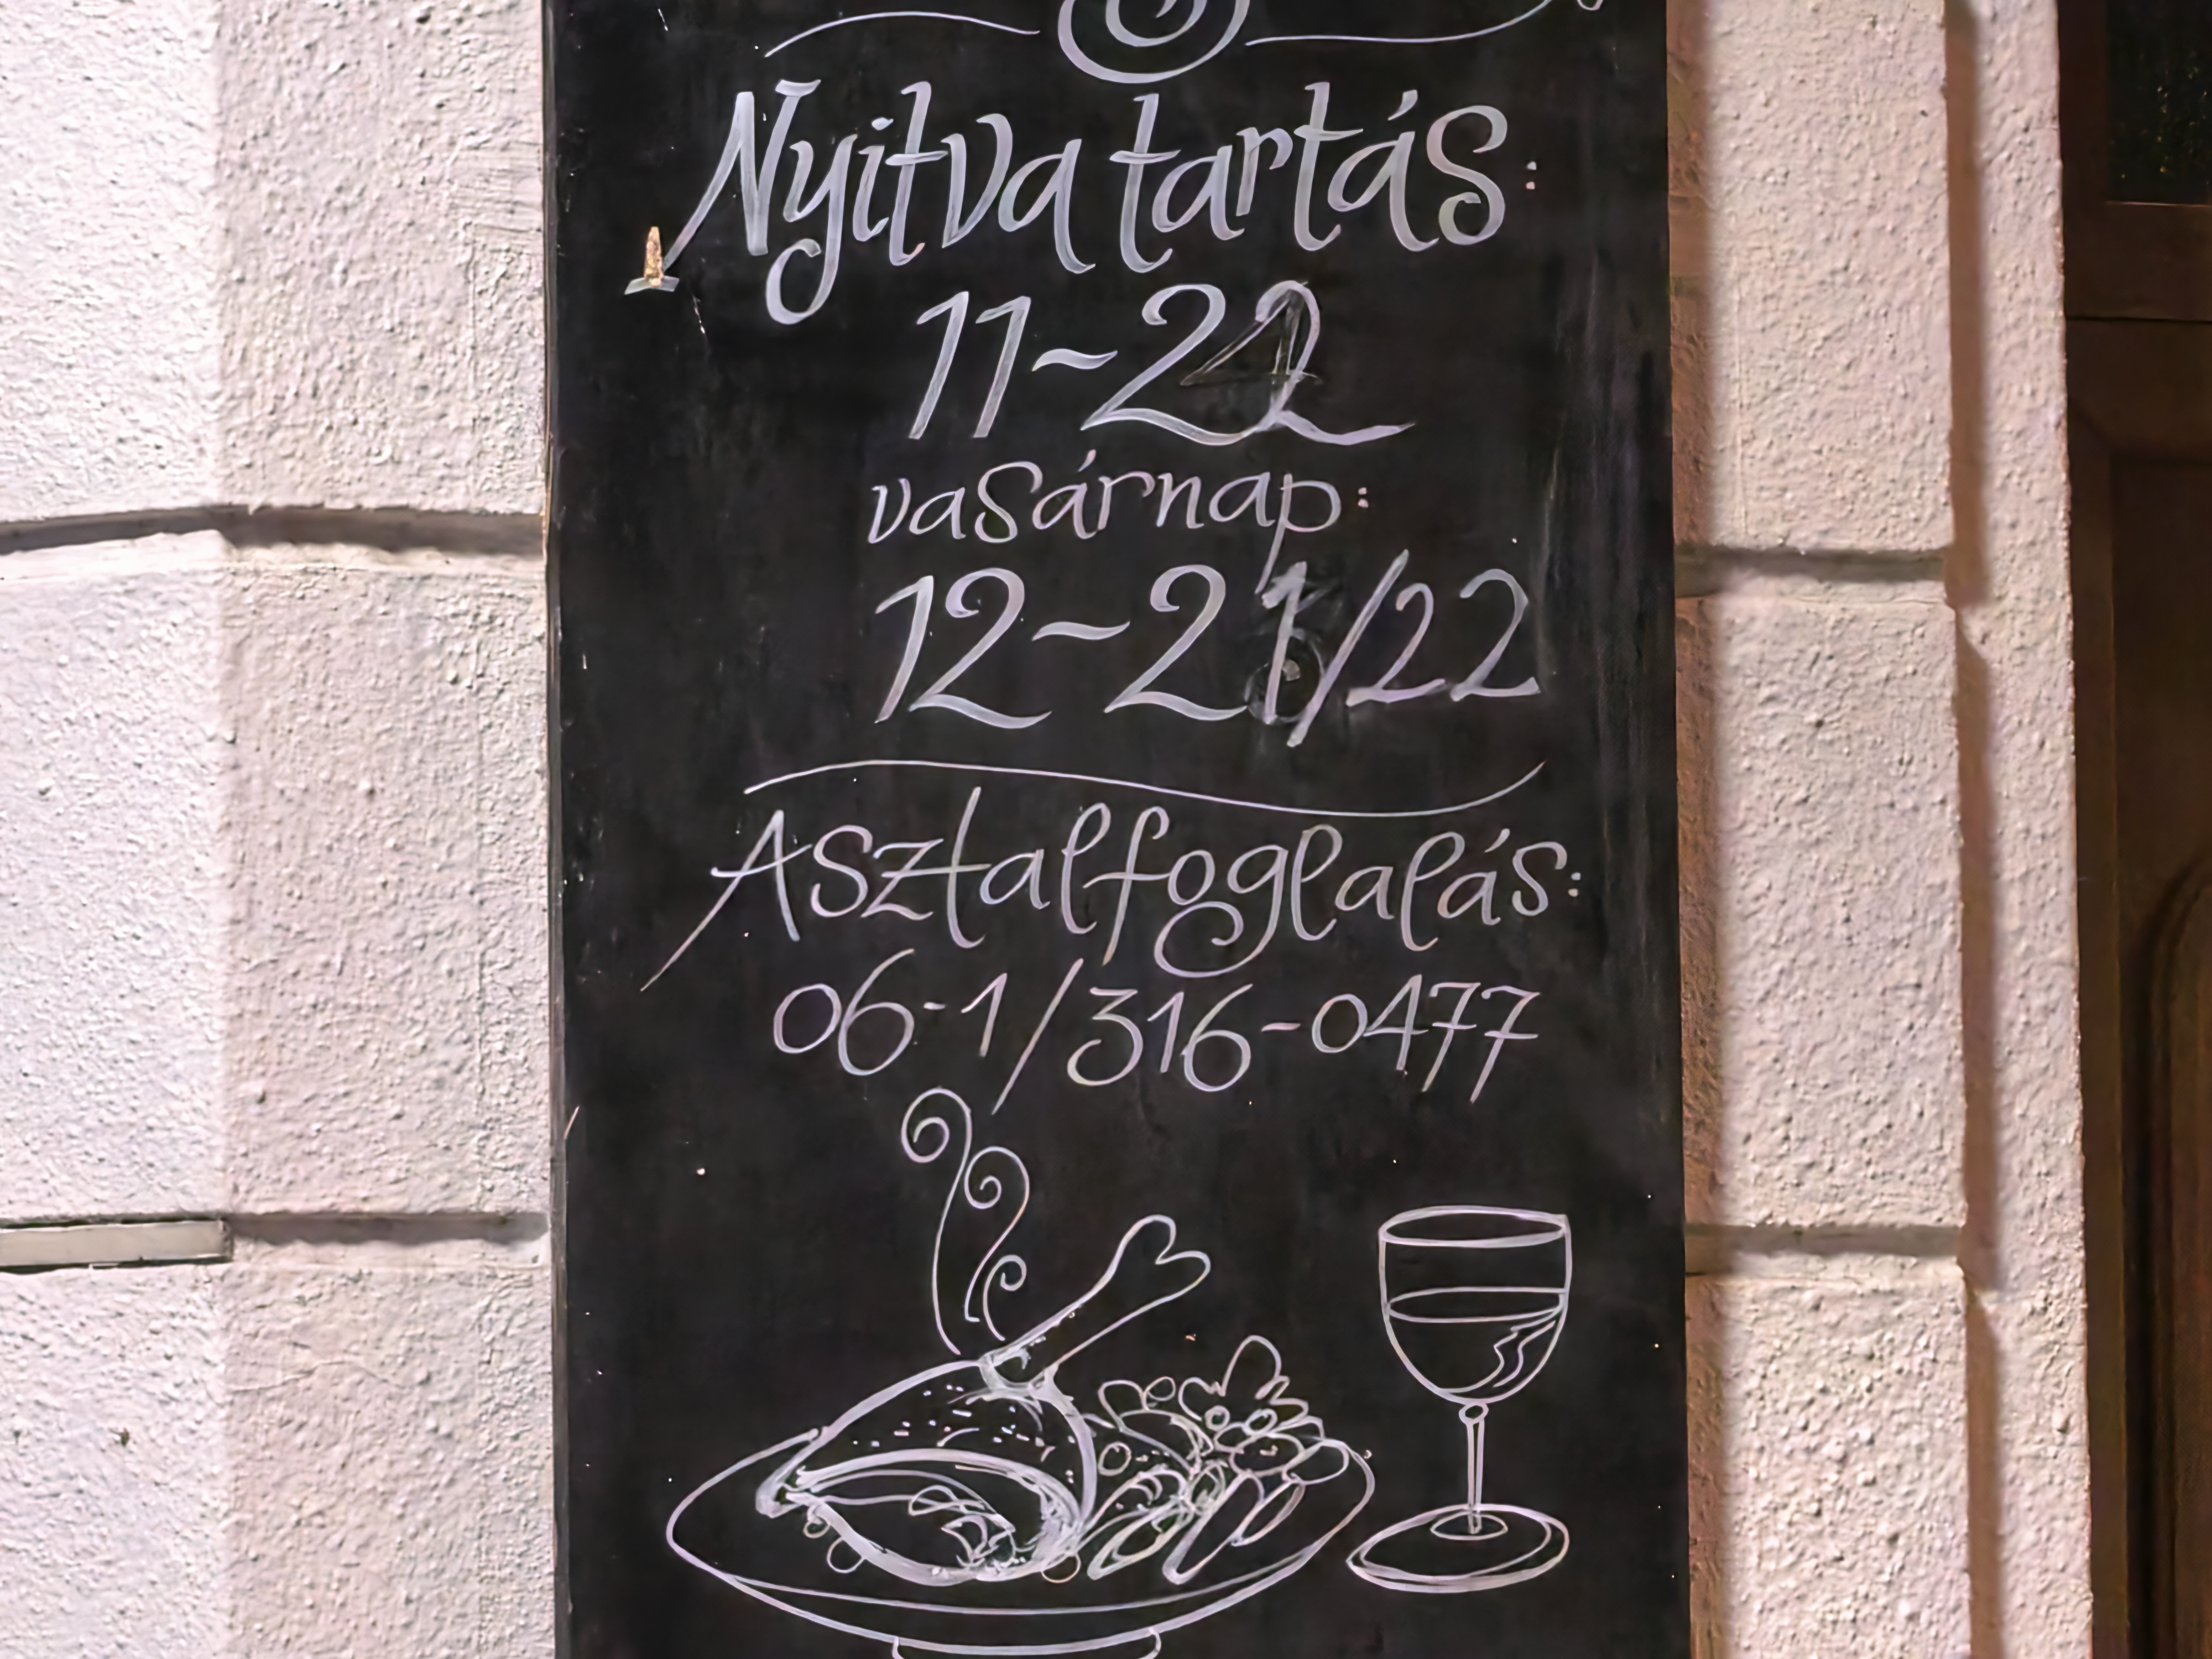 Nyitva tartás:
11~22
vasárnap:
12~21/22
Asztalfoglalás:
06-1/316-0477